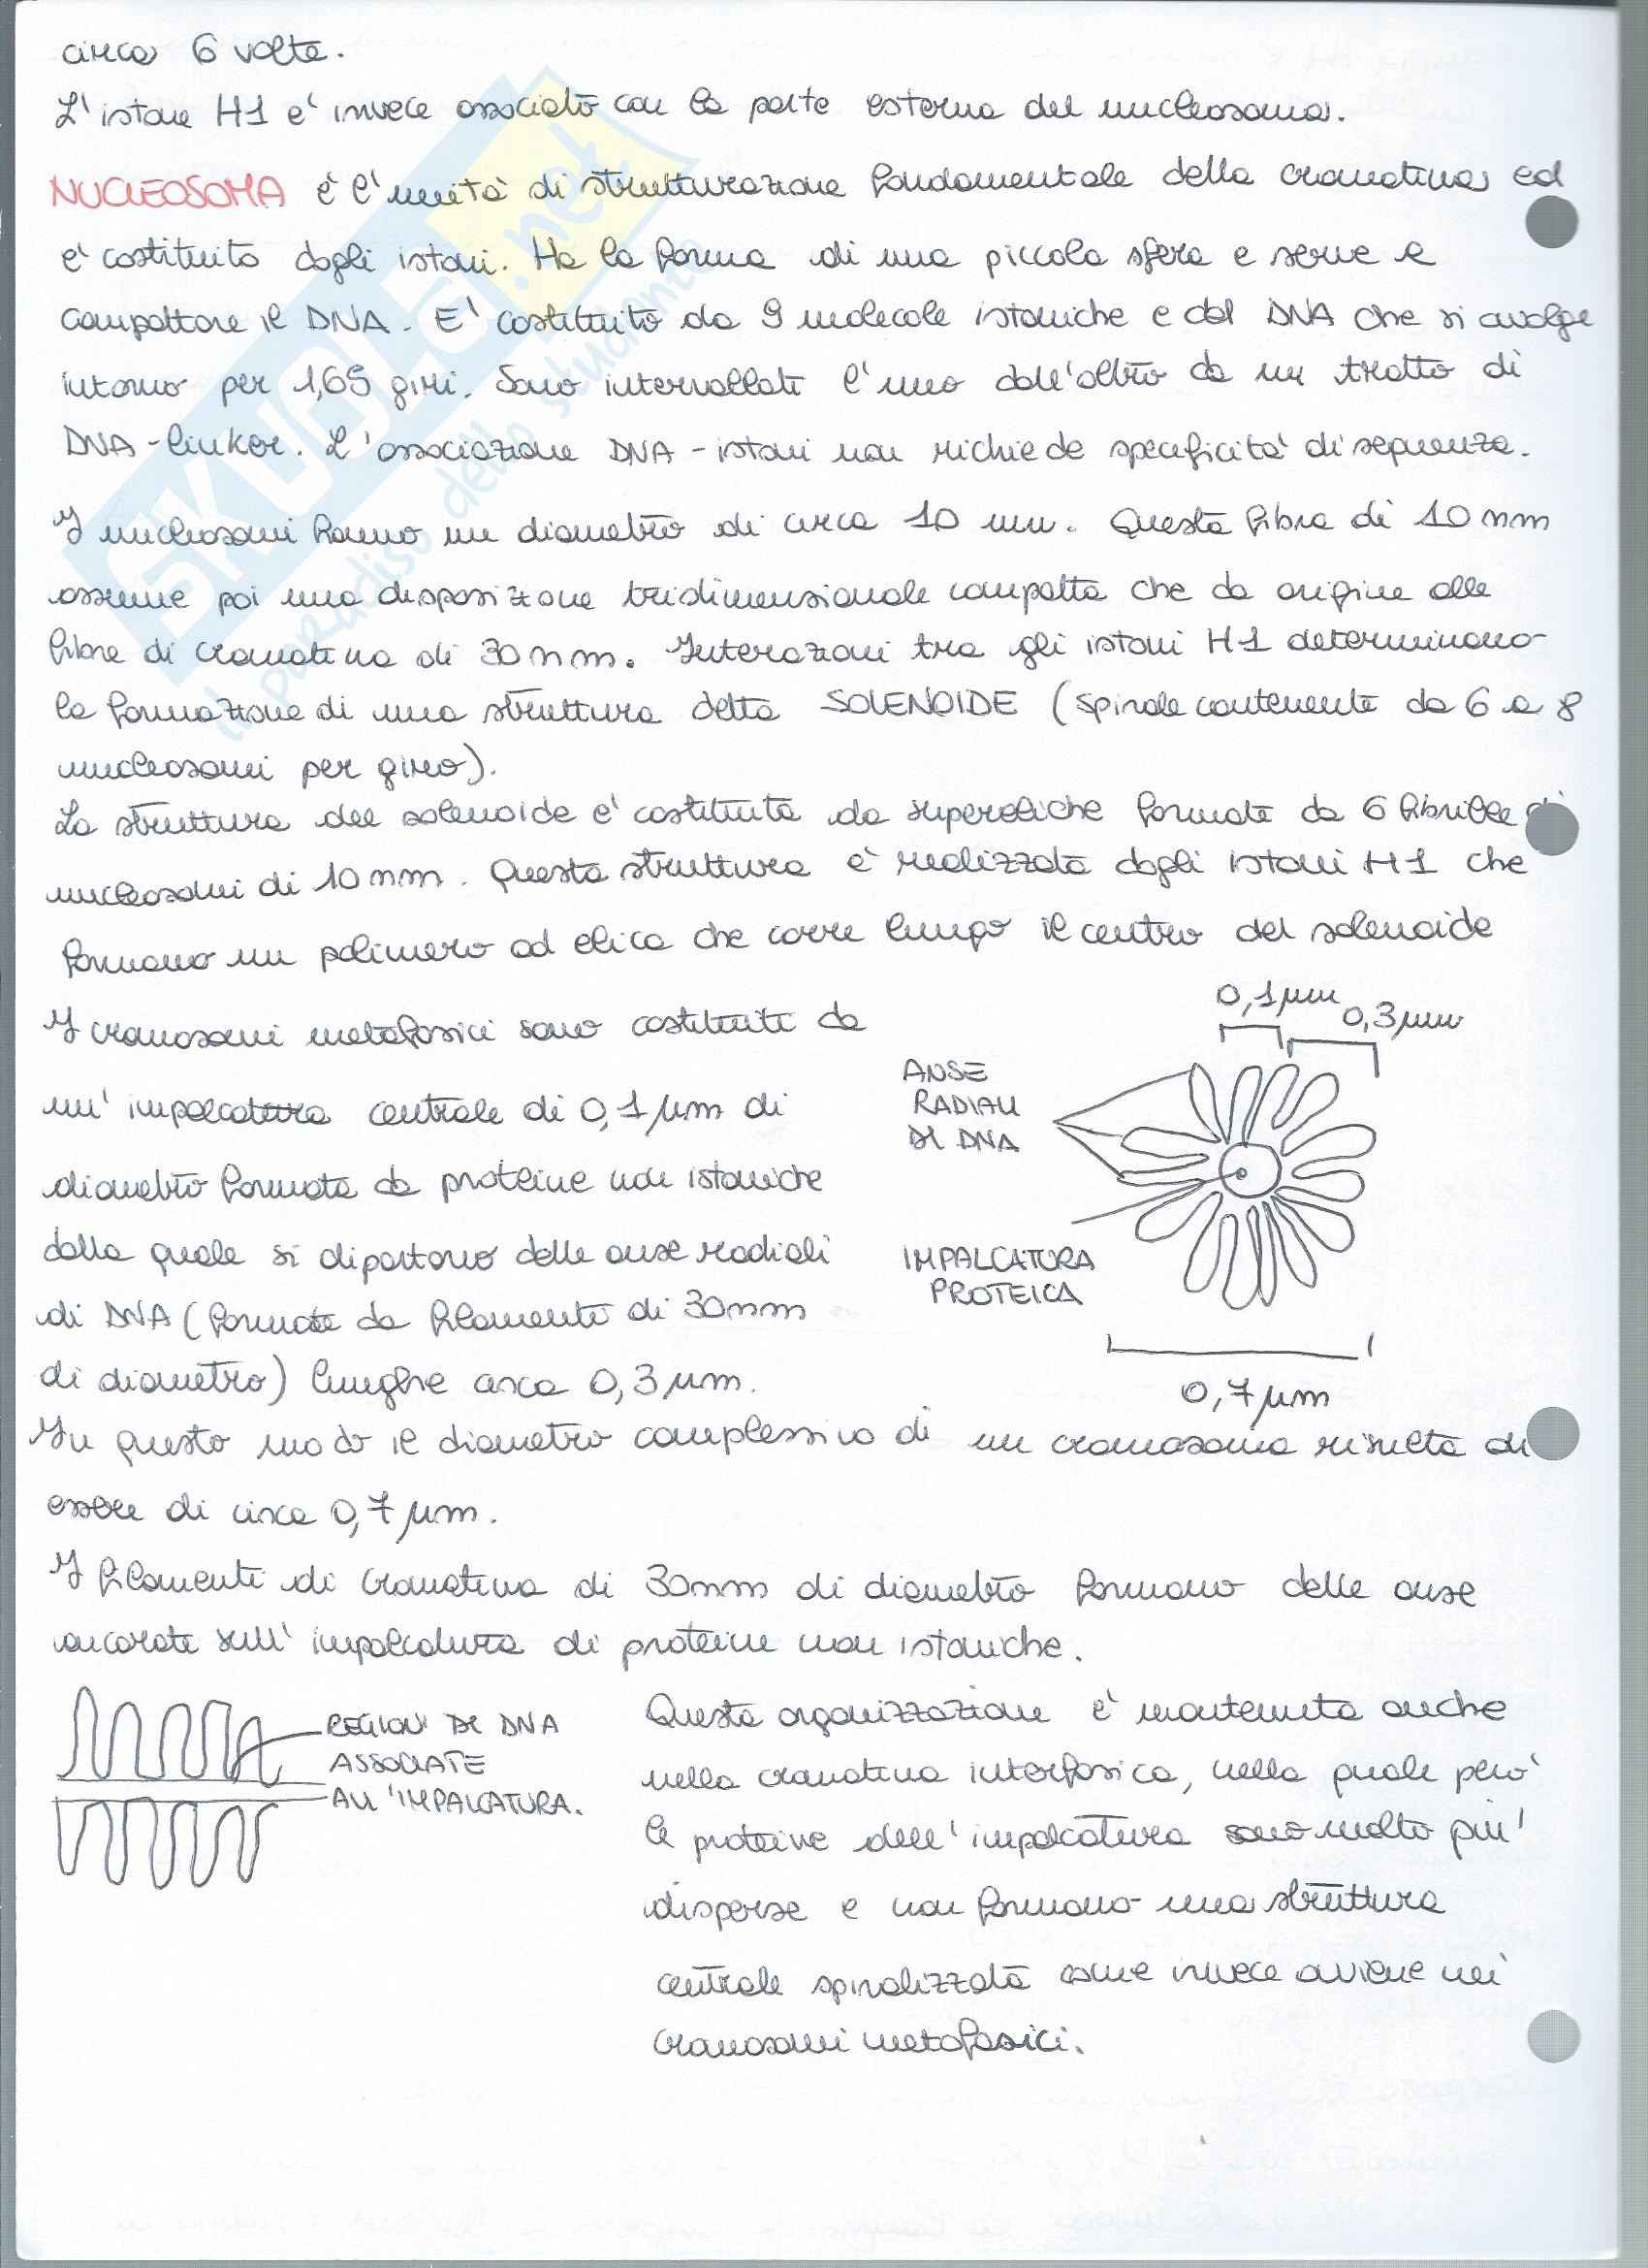 circa 6 volte.
L'istone H1 e' invece associato con la parte esterna del nucleosoma.
NUCLEOSOMA è l'unità di strutturazione fondamentale della cromatina, ed
e' costituito dagli istoni. Ha la forma di una piccola sfera e serve a
compattare il DNA. E' costituito da 9 molecole istoniche e dal DNA che si avvolge
intorno per 1,65 giri. Sono intervallati l'uno dall'altro da un tratto di
DNA-linker. L'associazione DNA-istoni non richiede specificità di sequenza.
I nucleosomi hanno un diametro di circa 10 nm. Questa fibra di 10 nm
assume poi una disposizione tridimensionale compatta che da origine alle
fibre di cromatina di 30 nm. Interazioni tra gli istoni H1 determinano
la formazione di una struttura detta SOLENOIDE (spirale contenente da 6 a 8
nucleosomi per giro).
La struttura del solenoide e' costituita da supereliche formate da 6 fibrille di
nucleosomi di 10 nm. Questa struttura è realizzata dagli istoni H1 che
formano un polimero ad elica che corre lungo il centro del solenoide
I cromosomi metafasici sono costituiti da
un'impalcatura centrale di 0,1 µm di
diametro formata da proteine non istoniche
dalla quale si dipartono delle anse radiali
di DNA (formate da filamento di 30 nm
di diametro) lunghe circa 0,3 µm.
0,1 µm
0,3 µm
ANSE
RADIALI
DI DNA
IMPALCATURA
PROTEICA
0,7 µm
In questo modo il diametro complessivo di un cromosoma risulta di
essere di circa 0,7 µm.
I filamenti di cromatina di 30 nm di diametro formano delle anse
ancorate sull'impalcatura di proteine non istoniche.
REGIONI DI DNA
ASSOCIATE
ALL'IMPALCATURA.
Questa organizzazione e' mantenuta anche
nella cromatina interfasica, nella quale però
le proteine dell'impalcatura sono molto piu'
disperse e non formano una struttura
centrale spiralizzata come invece avviene nei
cromosomi metafasici.
SKUOLA.net
il paradiso dello studente